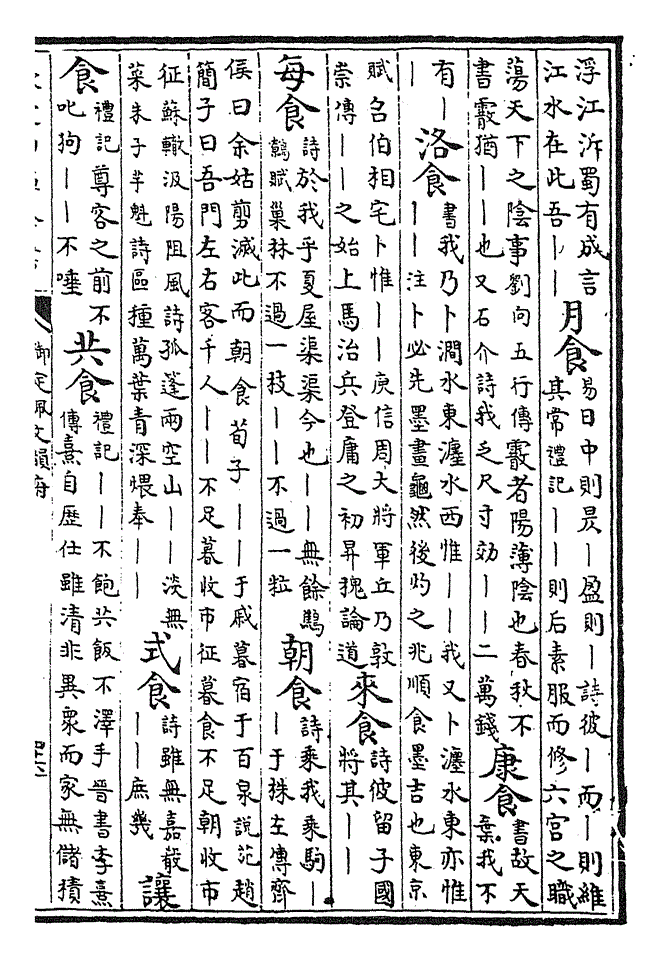 浮江泝蜀有成言
江水在此吾丨丨
月食
易日中則昃丨盈則丨詩彼丨而丨則維
其常禮記丨丨則后素服而修六宮之職
蕩天下之陰事劉向五行傳霰者陽薄陰也春秋不
書霰猶丨丨也又石介詩我乏尺寸効丨丨二萬錢
康食
書故天
棄我不
有丨
丨
洛食
書我乃卜澗水東瀍水西惟丨丨我又卜瀍水東亦惟
丨丨注卜必先墨畫龜然後灼之兆順食墨吉也東京
賦召伯相宅卜惟丨丨庾信周大將軍丘乃敦
崇傳丨丨之始上馬治兵登庸之初昇槐論道
來食
詩彼留子國
將其丨丨
每食
詩於我乎夏屋渠渠今也丨丨無餘鷦
鷯賦巢林不過一枝丨丨不過一粒
朝食
詩乘我乘駒丨
丨于株左傳齊
侯曰余姑翦滅此而朝食荀子丨丨于戚暮宿于百泉說苑趙
簡子曰吾門左右客千人丨丨不足暮收市征暮食不足朝收市
征蘇轍汲陽阻風詩孤蓬兩空山丨丨淡無
菜朱子芋魁詩區種萬葉青深煨奉丨丨
式食
詩雖無嘉殽
丨丨庶幾
讓
食
禮記尊客之前不
叱狗丨丨不唾
共食
禮記丨丨不飽共飯不澤手晉書李熹
傳熹自歷仕雖清非異衆而家無儲積
御定佩文韻府